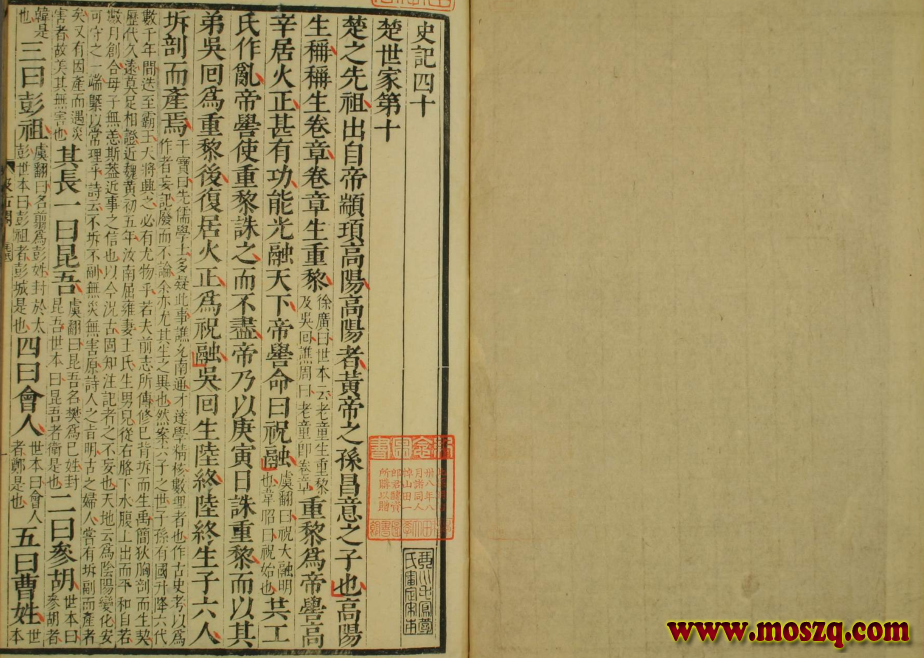 史記四十
楚世家第十
楚之先祖出自帝顓頊高陽高陽者黃帝之孫昌意之子也高陽
生稱稱生卷章卷章生重黎徐廣曰世本云老童生重黎及吳回譙周曰老童卽卷章重黎爲帝嚳高
辛居火正甚有功能光融天下帝嚳命曰祝融虞翻曰祝大融明也韋昭曰祝始也共工
氏作亂帝嚳使重黎誅之而不盡帝乃以庚寅日誅重黎而以其
弟吳回爲重黎後復居火正爲祝融吳回生陸終陸終生子六人
坼剖而產焉干寶曰先儒學士多疑此事譙允南通才達學精核數理者也作古史考以爲作者妄記廢而不論余亦尤其生之異也然案六子之世子孫有國升降六代
數千年間迭至霸王天將興之必有尤物乎若夫前志所傳修己背坼而生禹簡狄胸剖而生契
歷代久遠莫足相證近魏黃初五年汝南屈雍妻王氏生男兒從右胳下水腹上出而平和自若
數月創合母子無恙斯蓋近事之信也以今況古固知注記者之不妄也天地云爲陰陽變化安
可守之一端槩以常理乎詩云不坼不副無災無害原詩人之旨明古之婦人嘗有坼副而產者
矣又有因產而遇災害者故美其無害也其長一曰昆吾虞翻曰昆吾名樊爲己姓封昆吾世本曰昆吾者衞是也二曰參胡世本曰參胡者
韓是也三曰彭祖虞翻曰名翦爲彭姓封於大彭世本曰彭祖者彭城是也四曰會人世本曰會人者鄭是也五曰曹姓世本
www.moszq.com